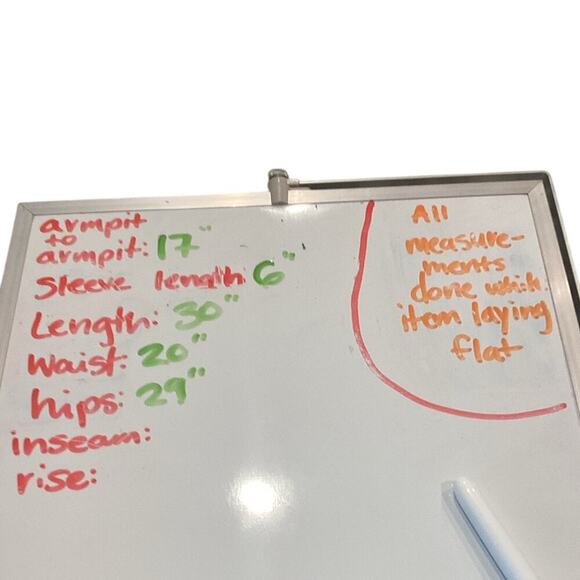 armpit
to
armpit: 17"
Sleeve length: 6"
Length: 30"
Waist: 20"
hips: 29"
inseam:
rise:
All
measure-
ments
done
item laying
flat